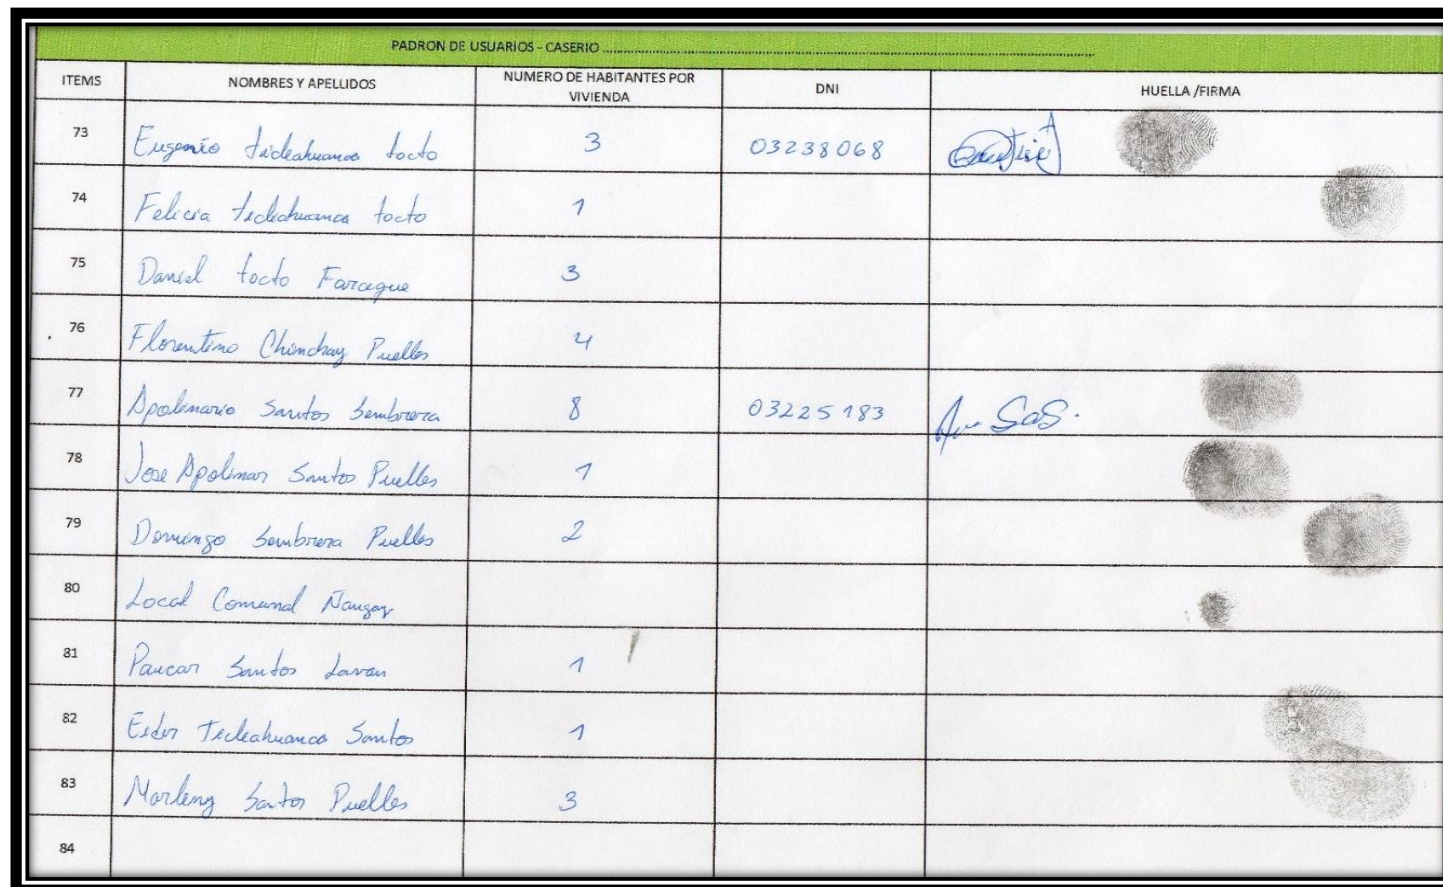 PADRON DE USUARIOS - CASERIO ........................................
ITEMS NOMBRES Y APELLIDOS NUMERO DE HABITANTES POR VIVIENDA DNI HUELLA /FIRMA
73 Eugenio ticleahuanca tocto 3 03238068
74 Felicia ticleahuanca tocto 1
75 Daniel tocto Farague 3
76 Florentino Chinchay Puelles 4
77 Apolinario Santos Sembrera 8 03225183
78 Jose Apolinar Santos Puelles 1
79 Domingo Sembrera Puelles 2
80 Local Comunal
81 Paucar Santos Lavan 1
82 Eider Ticleahuanca Santos 1
83 Marleny Santos Puelles 3
84